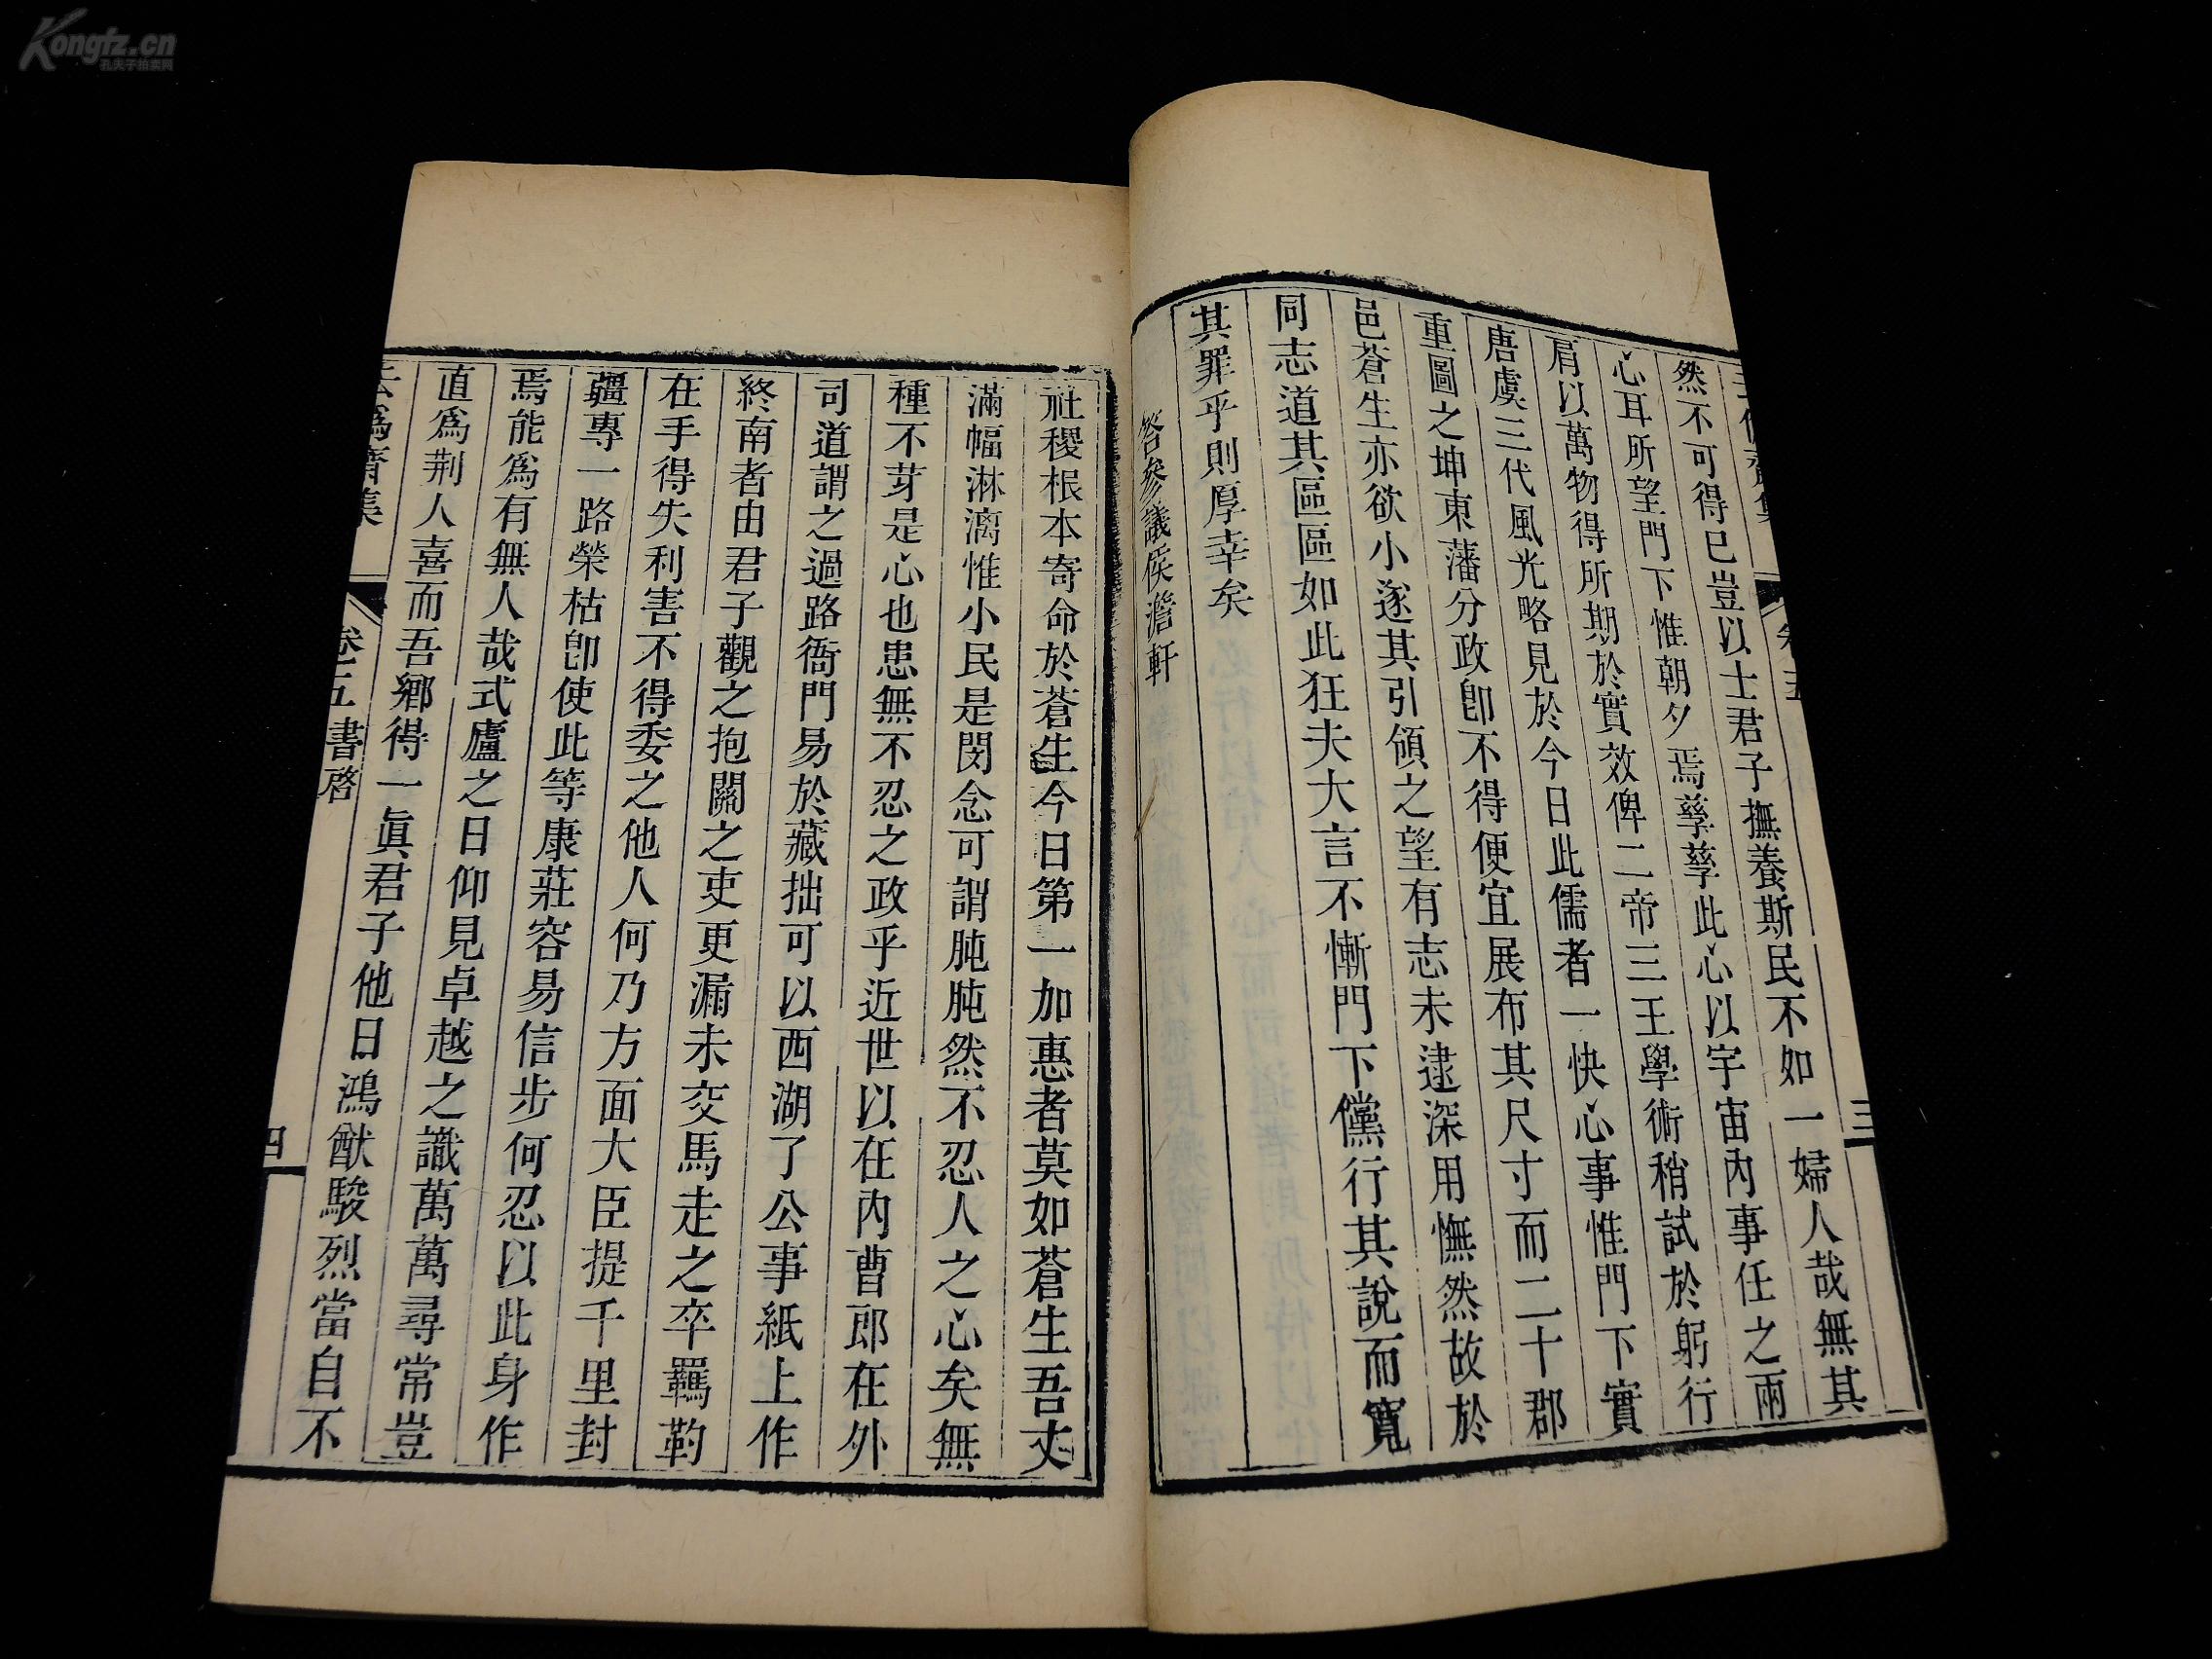 Kongfz.cn
孔夫子拍卖网
卷五
三
然不可得已豈以士君子撫養斯民不如一婦人哉無其
心耳所望門下惟朝夕焉孳孳此心以宇宙內事任之兩
肩以萬物得所期於實效俾二帝三王學術稍試於躬行
唐虞三代風光略見於今日此儒者一快心事惟門下實
重圖之坤東藩分政卽不得便宜展布其尺寸而二十郡
邑蒼生亦欲小遂其引領之望有志未逮深用憮然故於
同志道其區區如此狂夫大言不慚門下儻行其說而寬
其罪乎則厚幸矣
答參議侯澹軒
社稷根本寄命於蒼生今日第一加惠者莫如蒼生吾丈
滿幅淋漓惟小民是閔念可謂肫肫然不忍人之心矣無
種不芽是心也患無不忍之政乎近世以在內曹郎在外
司道謂之過路衙門易於藏拙可以西湖了公事紙上作
終南者由君子觀之抱關之吏更漏未交馬走之卒羈靮
在手得失利害不得委之他人何乃方面大臣提千里封
疆專一路榮枯卽使此等康莊容易信步何忍以此身作
焉能爲有無人哉式廬之日仰見卓越之識萬萬尋常豈
直爲荆人喜而吾鄉得一眞君子他日鴻猷駿烈當自不
去爲齋集
卷五書啓
四